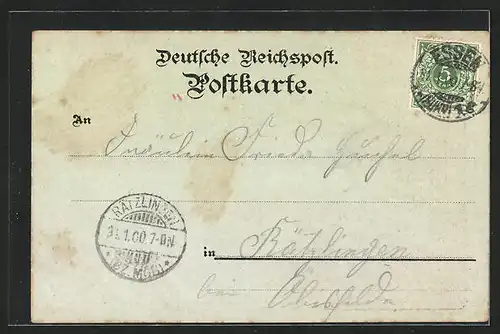 Deutsche Reichspost.
Postkarte.
ESSEN
5
An
Fräulein Frieda
RÄTZLINGEN
31.1.00.7-8N
in Rätzlingen
bei Öbisfelde